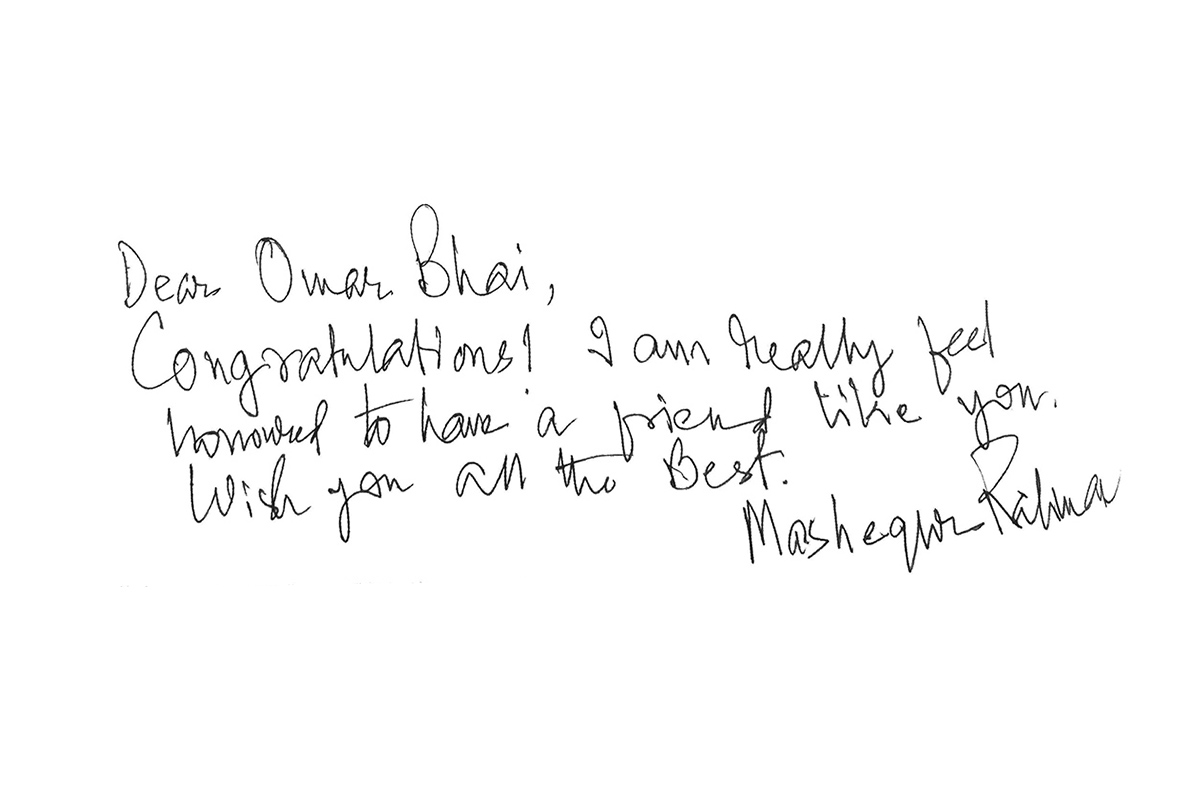 Dear Omar Bhai,
Congratulations! I am really feel
honoured to have a friend like you.
Wish you all the Best.
Mashequr Rahman